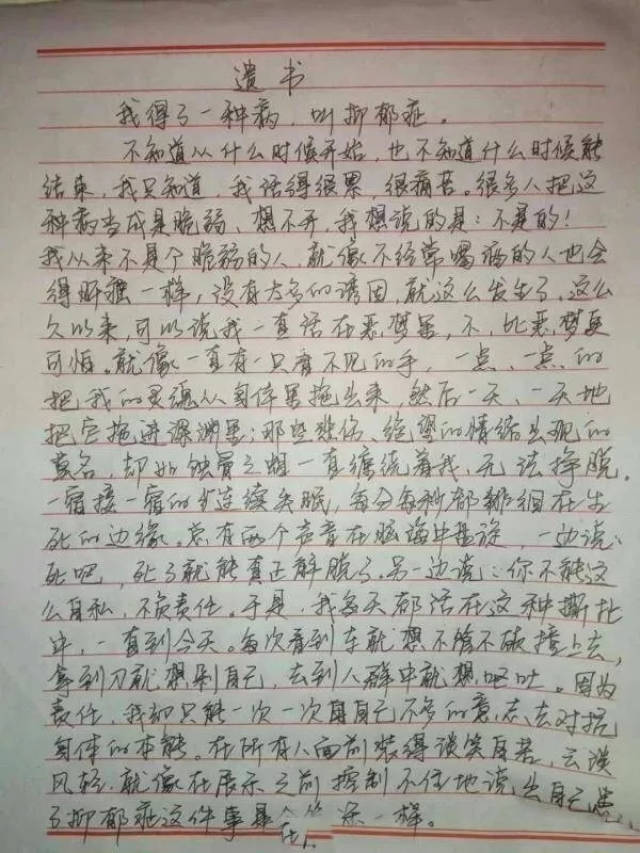 遗书
我得了一种病，叫抑郁症。
不知道从什么时候开始，也不知道什么时候能
结束，我只知道，我活得很累，很痛苦。很多人把这
种病当成是脆弱、想不开，我想说的是：不是的！
我从来不是个脆弱的人，就像不经常喝酒的人也会
得肝癌一样，没有太多的诱因，就这么发生了。这么
久以来，可以说我一直活在恶梦里，不，比恶梦更
可怕。就像一直有一只看不见的手，一点、一点的
把我的灵魂从身体里拖出来，然后一天、一天地
把它拖进深渊里；那些悲伤、绝望的情绪出现的
莫名，却如蚀骨之蛆一直缠绕着我，无法挣脱。
一宿接一宿的连续失眠，每分每秒都徘徊在生
死的边缘。总有两个声音在脑海中盘旋，一边说：
死吧，死了就能真正解脱了。另一边说：你不能这
么自私，不负责任。于是，我每天都活在这种撕扯
中，一直到今天。每次看到车就想不管不顾撞上去，
拿到刀就想割自己，去到人群中就想呕吐。因为
责任，我却只能一次一次用自己不多的意志去对抗
身体的本能。在所有人面前装得谈笑自若，云淡
风轻，就像在展示之前控制不住地说出自己患
了抑郁症这件事是一样。